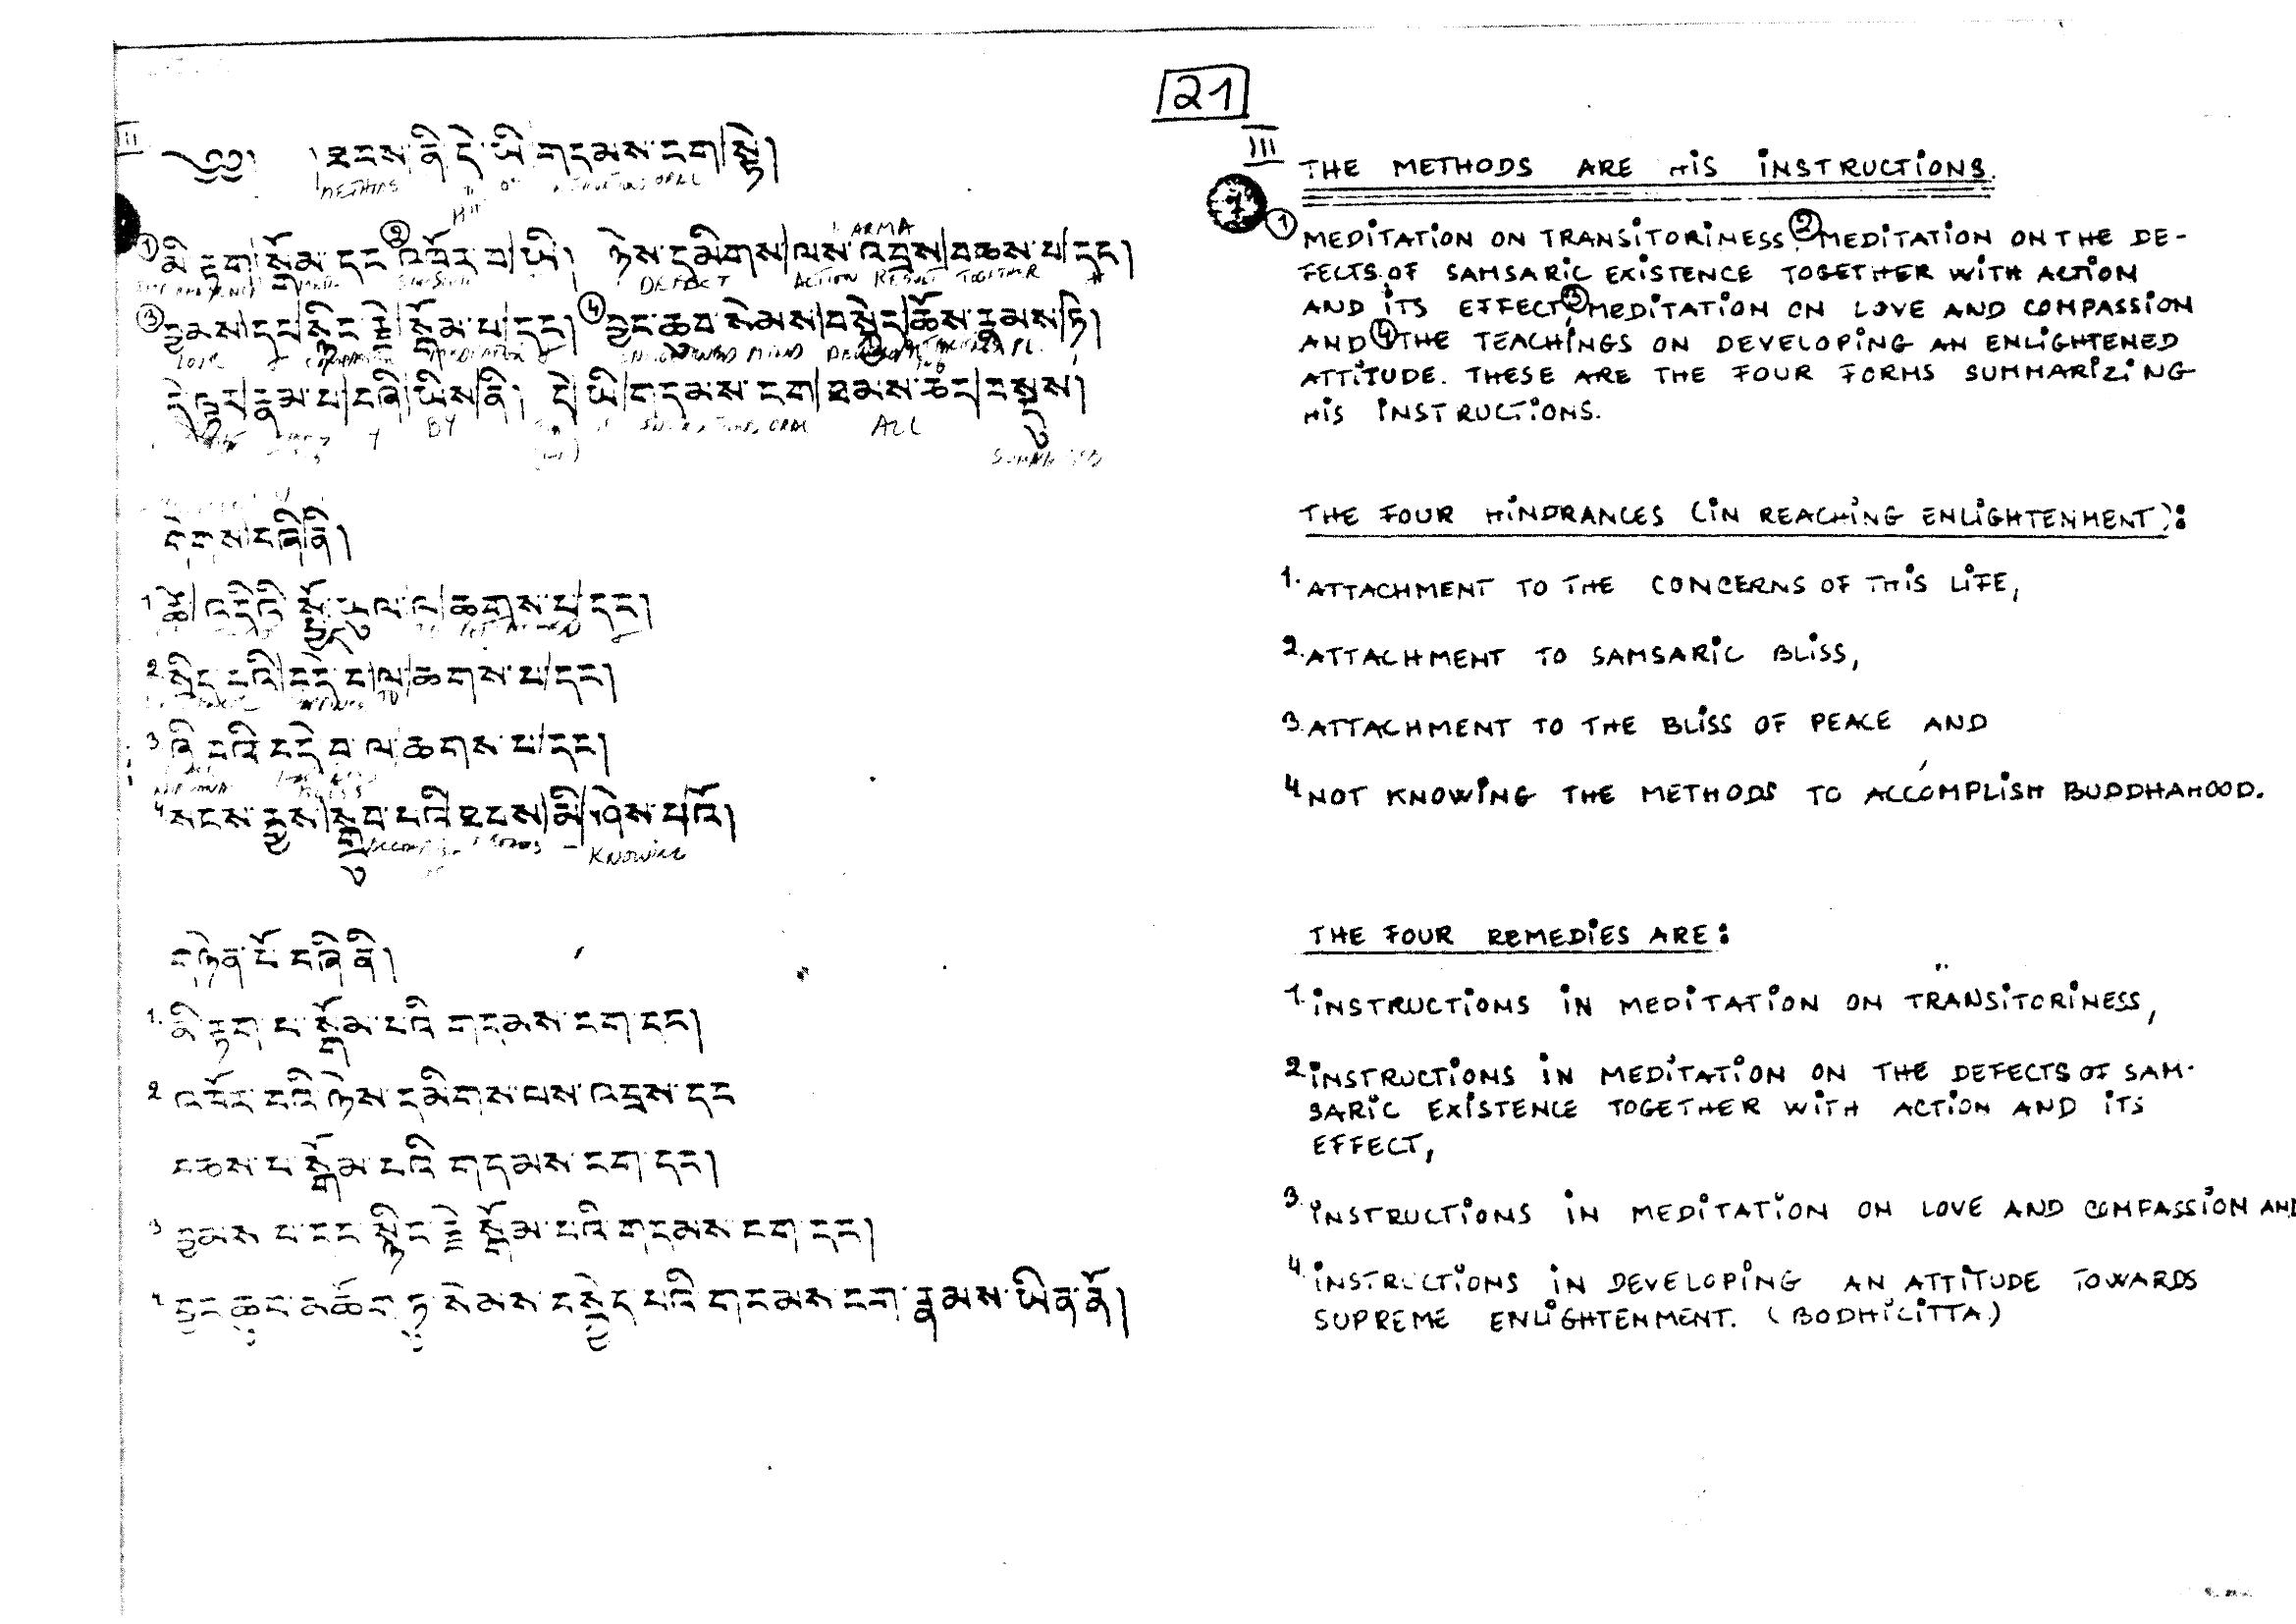 21
III
༄༅། ཐབས་ནི་དེ་ཡི་གདམས་ངག་སྟེ།
① མི་རྟག་སྒོམ་དང་ ② འཁོར་བ་ཡི། ཉེས་དམིགས་ལས་འབྲས་བཅས་པ་དང།
DEFECT ACTION RESULT TOGETHER
③ བྱམས་དང་སྙིང་རྗེ་སྒོམ་པ་དང། ④ བྱང་ཆུབ་སེམས་བསྐྱེད་ཆོས་རྣམས་ཏེ།
LOVE
དེ་ལྟར་རྣམ་པ་བཞི་ཡིས་ནི། དེ་ཡི་གདམས་ངག་ཐམས་ཅད་བསྡུས།
4 BY ALL
གེགས་བཞི་ནི།
1 ཚེ་འདིའི་སྤྱོད་ཡུལ་ལ་ཆགས་པ་དང།
2 སྲིད་པའི་བདེ་བ་ལ་ཆགས་པ་དང།
3 ཞི་བའི་བདེ་བ་ལ་ཆགས་པ་དང།
4 སངས་རྒྱས་སྒྲུབ་པའི་ཐབས་མི་ཤེས་པའོ།
KNOWING
གཉེན་པོ་བཞི་ནི།
1. མི་རྟག་པ་སྒོམ་པའི་གདམས་ངག་དང།
2 འཁོར་བའི་ཉེས་དམིགས་ལས་འབྲས་དང
བཅས་པ་སྒོམ་པའི་གདམས་ངག་དང།
3 བྱམས་པ་དང་སྙིང་རྗེ་སྒོམ་པའི་གདམས་ངག་དང།
བྱང་ཆུབ་མཆོག་ཏུ་སེམས་བསྐྱེད་པའི་གདམས་ངག་རྣམས་ཡིན་ནོ།
III
THE METHODS ARE HIS INSTRUCTIONS.
① MEDITATION ON TRANSITORINESS, ② MEDITATION ON THE DE-
FECTS OF SAMSARIC EXISTENCE TOGETHER WITH ACTION
AND ITS EFFECT, ③ MEDITATION ON LOVE AND COMPASSION
AND ④ THE TEACHINGS ON DEVELOPING AN ENLIGHTENED
ATTITUDE. THESE ARE THE FOUR FORMS SUMMARIZING
HIS INSTRUCTIONS.
THE FOUR HINDRANCES (IN REACHING ENLIGHTENMENT):
1. ATTACHMENT TO THE CONCERNS OF THIS LIFE,
2. ATTACHMENT TO SAMSARIC BLISS,
3. ATTACHMENT TO THE BLISS OF PEACE AND
4 NOT KNOWING THE METHODS TO ACCOMPLISH BUDDHAHOOD.
THE FOUR REMEDIES ARE:
1. INSTRUCTIONS IN MEDITATION ON TRANSITORINESS,
2 INSTRUCTIONS IN MEDITATION ON THE DEFECTS OF SAM-
SARIC EXISTENCE TOGETHER WITH ACTION AND ITS
EFFECT,
3. INSTRUCTIONS IN MEDITATION ON LOVE AND COMPASSION AND
4. INSTRUCTIONS IN DEVELOPING AN ATTITUDE TOWARDS
SUPREME ENLIGHTENMENT. (BODHICITTA)